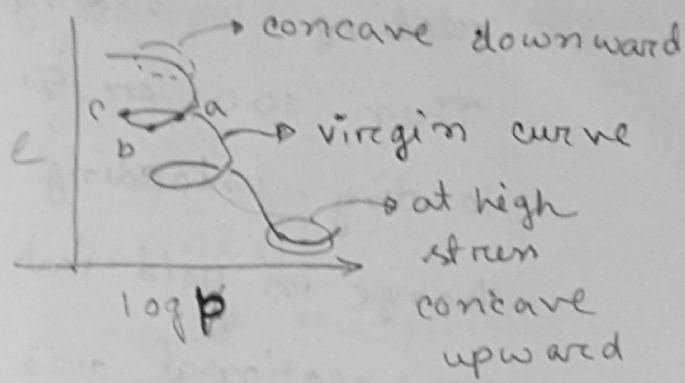 concave downward
c
a
virgin curve
e
b
at high
stress
concave
upward
log p